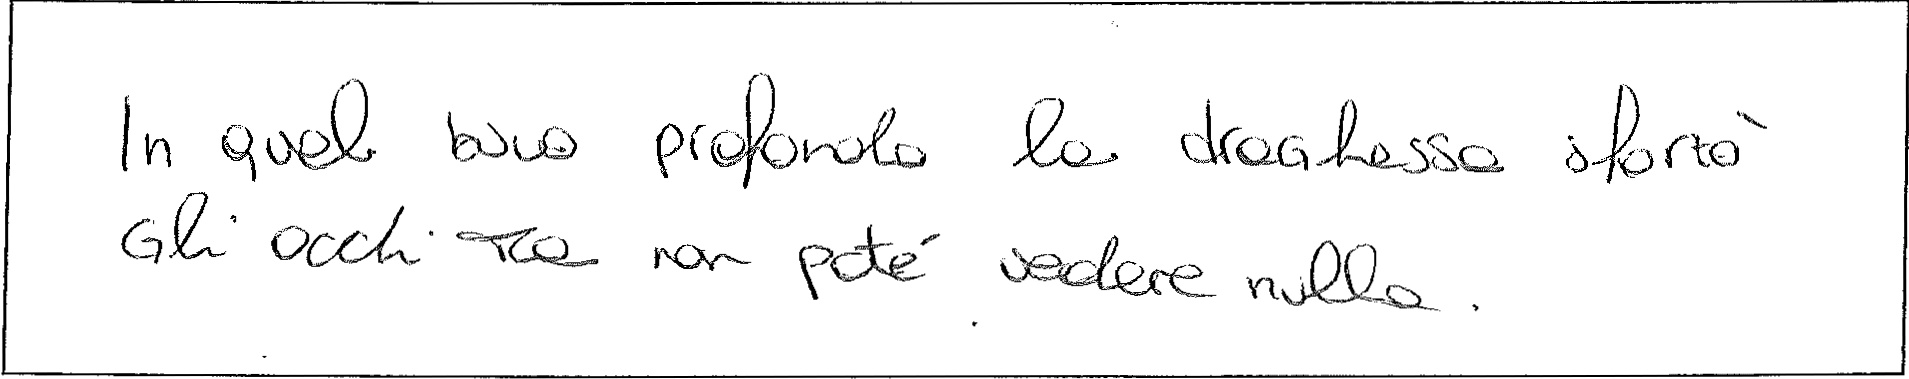 In quel buco profondo la draghessa sforzò
gli occhi ma non poté vedere nulla.